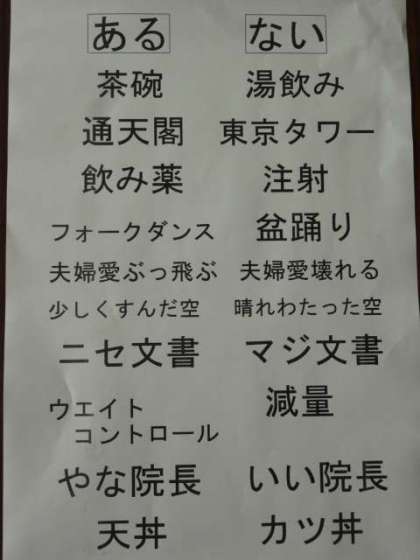 ある ない
茶碗 湯飲み
通天閣 東京タワー
飲み薬 注射
フォークダンス 盆踊り
夫婦愛ぶっ飛ぶ 夫婦愛壊れる
少しくすんだ空 晴れわたった空
ニセ文書 マジ文書
ウエイト 減量
コントロール
やな院長 いい院長
天丼 カツ丼